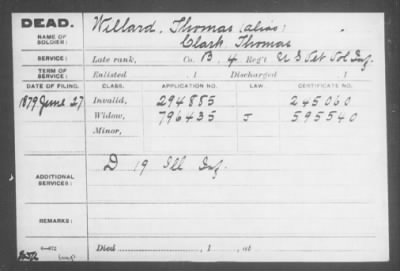 DEAD.
NAME OF SOLDIER:
Willard, Thomas (alias)
Clark, Thomas
SERVICE:
Late rank, Co. B, 4 Reg't U S Vet Vol Inf.
TERM OF SERVICE:
Enlisted , 1 Discharged , 1
DATE OF FILING. CLASS. APPLICATION NO. LAW. CERTIFICATE NO.
1879 June 27 Invalid, 294885 245060
Widow, 796435 J 595540
Minor,
ADDITIONAL SERVICES:
D 19 Ill Inf.
REMARKS:
Died , 1 , at